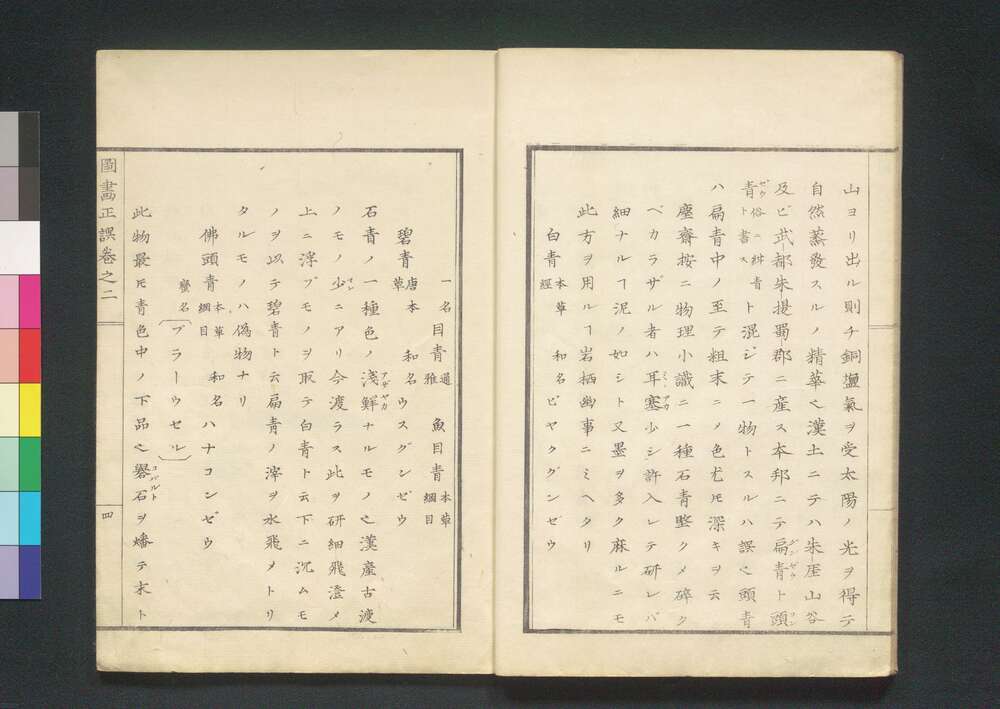 山ヨリ出ル則チ銅鹽氣ヲ受太陽ノ光ヲ得テ
自然蒸發スルノ精華也漢土ニテハ朱厓山谷
及ビ武都朱提蜀郡ニ産ス本邦ニテ扁青ト頭
青ト俗ニ紺青ト書ス混ジテ一物トスルハ誤也頭青
ハ扁青中ノ至テ粗末ニメ色尤モ深キヲ云
塵齋按ニ物理小識ニ一種石青堅クメ碎ク
ベカラザル者ハ耳塞少シ許入レテ研レバ
細ナルヿ泥ノ如シト又墨ヲ多ク麻ルニモ
此方ヲ用ルヿ岩栖幽事ニミヘタリ
白青 本草經 和名ビヤクグンゼウ
一名目青通雅 魚目青本草綱目
碧青 唐本草 和名ウスグンゼウ
石青ノ一種色ノ浅鮮ナルモノ也漢産古渡
ノモノ少ニアリ今渡ラス此ヲ研細飛澄メ
上ニ浮ブモノヲ取テ白青ト云下ニ沉ムモ
ノヲ以テ碧青ト云扁青ノ滓ヲ水飛メトリ
タルモノハ偽物ナリ
佛頭青 本草綱目 和名ハナコンゼウ
蠻名 ブラーウセル
此物最モ青色中ノ下品也礜石ヲ燔テ末ト
圖畵正誤卷之二
四